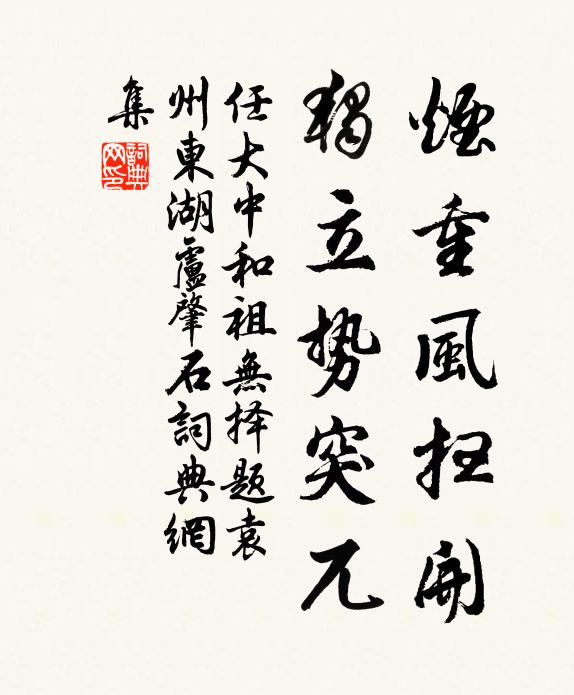 煙重風扫開
獨立势突兀
任大中和祖無择题袁
州東湖盧肇石詞典網
集
詞典网印